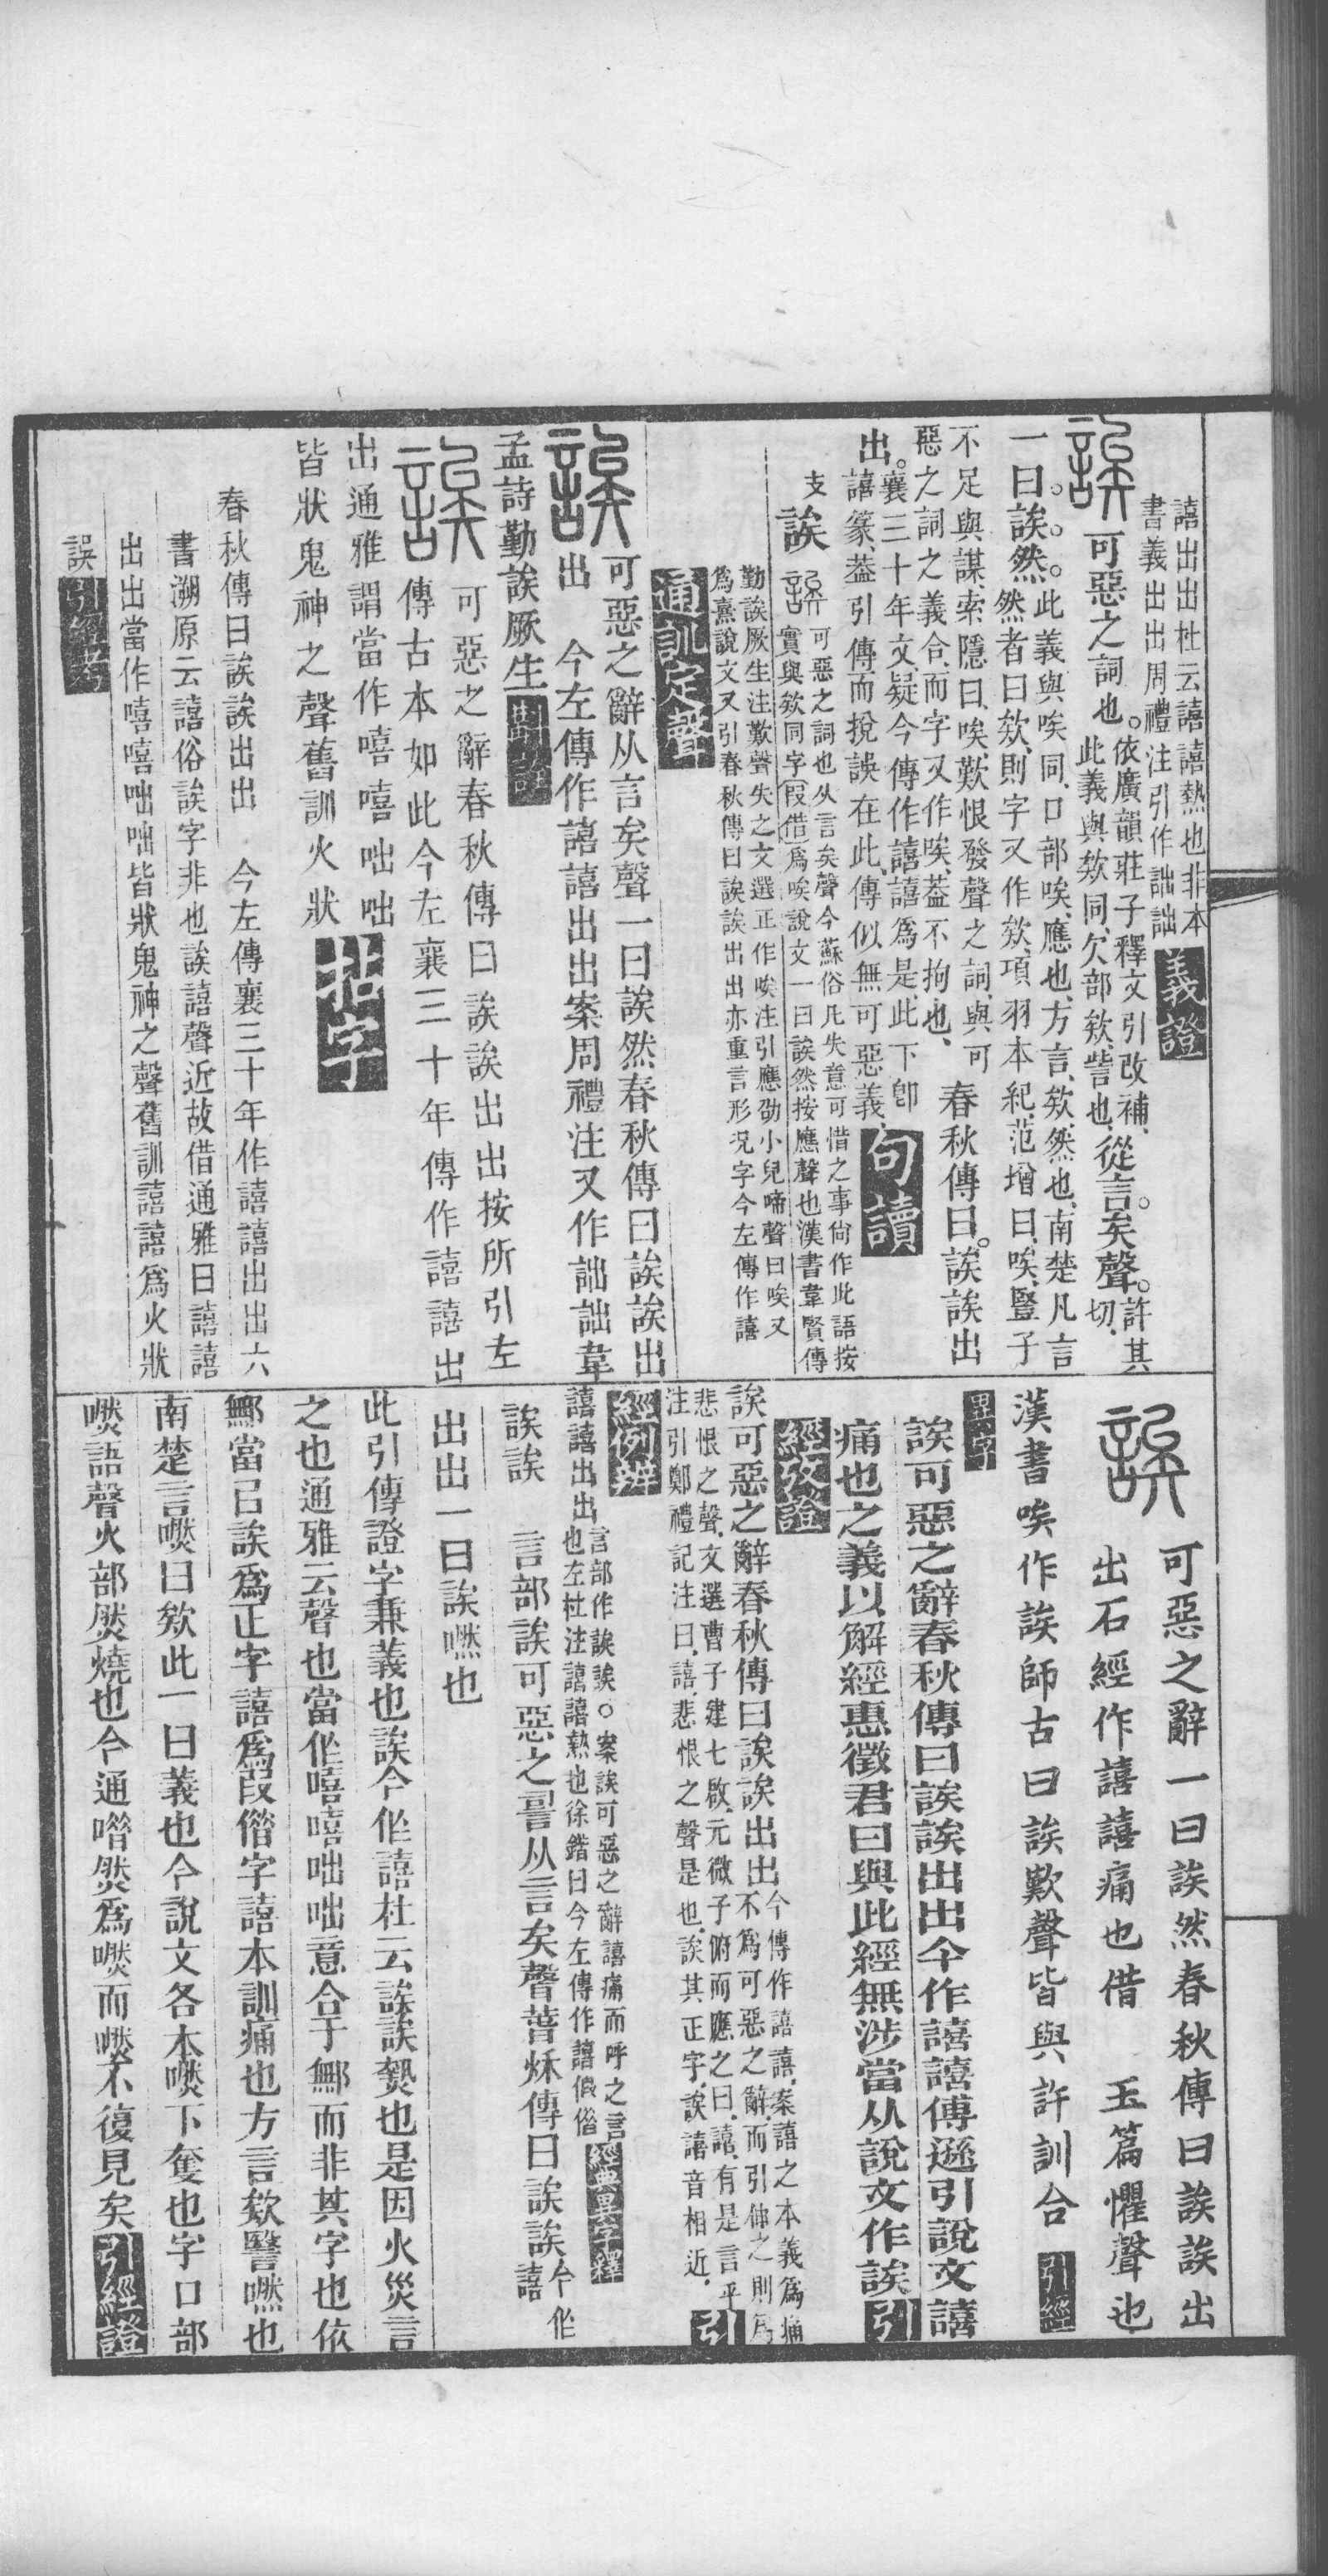 譆出出杜云譆譆熱也非本
書義出出周禮注引作詘詘
義證
誒可惡之詞也。依廣韻莊子釋文引改補、從言。矣聲。許其
此義與欸同、欠部欸、訾也、切、
一曰。誒。然。此義與唉同、口部唉、應也、方言、欸、然也、南楚凡言
然者曰欸、則字又作欸、項羽本紀、范增曰、唉、豎子
不足與謀、索隱曰、唉、歎恨發聲之詞、與可
惡之詞之義合、而字又作唉、葢不拘也、
春秋傳曰。誒誒出
出。襄三十年文、疑今傳作譆譆爲是、此下卽
譆篆、葢引傳而挩誤在此、傳似無可惡義、
句讀
支
誒
可惡之詞也从言矣聲今蘇俗凡失意可惜之事尙作此語按
實與欸同字叚借爲唉說文一曰誒然按應聲也漢書韋賢傳
勤誒厥生注歎聲失之文選正作唉注引應劭小兒啼聲曰唉又
爲熹說文又引春秋傳曰誒誒出出亦重言形況字今左傳作譆
通訓定聲
誒可惡之辭从言矣聲一曰誒然春秋傳曰誒誒出
出 今左傳作譆譆出出案周禮注又作詘詘韋
孟詩勤誒厥生
斠詮
誒可惡之辭春秋傳曰誒誒出出按所引左
傳古本如此今左襄三十年傳作譆譆出
出通雅謂當作嘻嘻咄咄
皆狀鬼神之聲舊訓火狀
非字
春秋傳曰誒誒出出 今左傳襄三十年作譆譆出出六
書溯原云譆俗誒字非也誒譆聲近故借通雅曰譆譆
出出當作嘻嘻咄咄皆狀鬼神之聲舊訓譆譆爲火狀
誤
引經考
誒可惡之辭一曰誒然春秋傳曰誒誒出
出石經作譆譆痛也借 玉篇懼聲也
漢書唉作誒師古曰誒歎聲皆與許訓合
引經
異字
誒可惡之辭春秋傳曰誒誒出出今作譆譆傳遜引說文譆
痛也之義以解經惠徵君曰與此經無涉當从說文作誒
引
經攷證
誒可惡之辭春秋傳曰誒誒出出今傳作譆譆、案譆之本義爲痛
不爲可惡之辭、而引伸之則爲
悲恨之聲、文選曹子建七啟、元微子俯而應之曰、譆、有是言乎
注引鄭禮記注曰、譆、悲恨之聲是也、誒其正字、誒譆音相近、
引
經例辨
譆譆出出言部作誒誒○案誒可惡之辭譆痛而呼之言
也左杜注譆譆熱也徐鍇曰今左傳作譆假借
經典異字釋
誒誒 言部誒可惡之䛐从言矣聲萅秌傳曰誒誒今作
譆
出出一曰誒嘫也
此引傳證字兼義也誒今作譆杜云誒誒熱也是因火災言
之也通雅云聲也當作嘻嘻咄咄意合于鄦而非其字也依
鄦當㠯誒爲正字譆爲叚借字譆本訓痛也方言欸譍嘫也
南楚言嘫曰欸此一曰義也今說文各本嘫下奪也字口部
嘫語聲火部然燒也今通借然爲嘫而嘫不復見矣
引經證